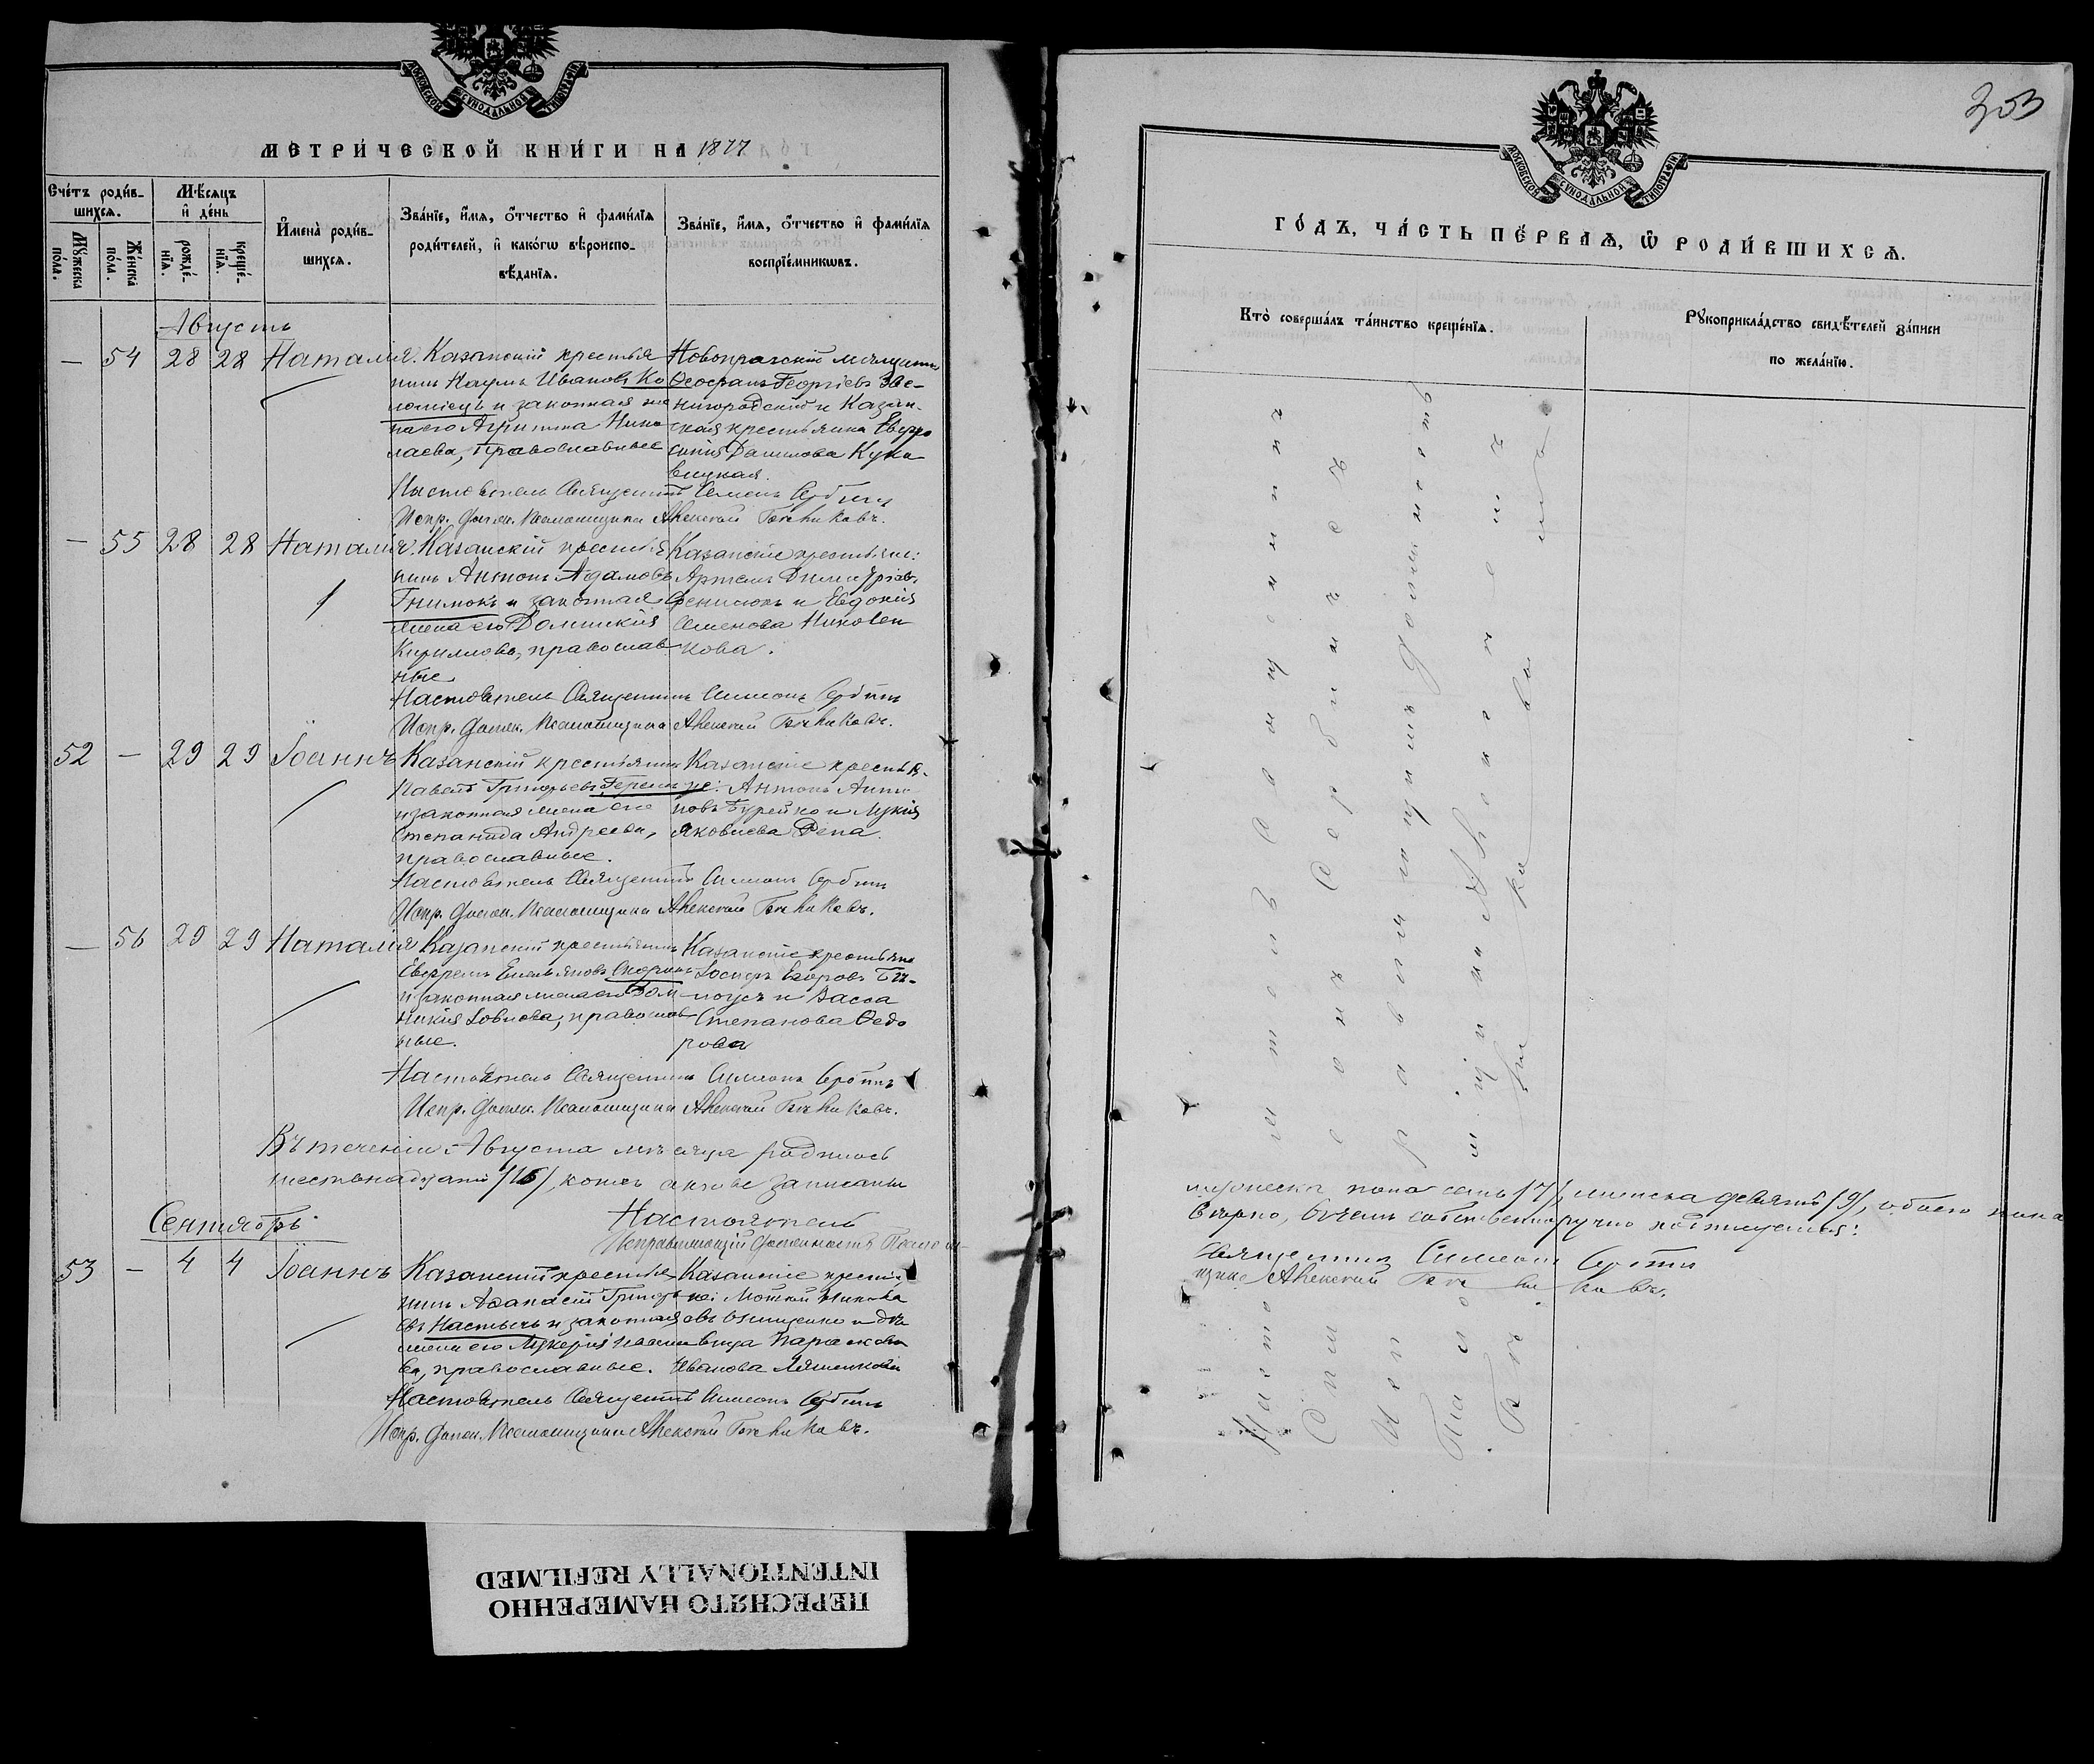 МОСКОВСКОЙ СѴНОДАЛЬНОЙ ТИПОГРАФІИ
МЕТРИ́ЧЕСКОЙ КНИ́ГИ НА 1877
Сче́тъ роди́в-
шихся.
Мѣ́сяцъ
и҆ де́нь
Мꙋ́жеска
по́ла.
Же́нска
по́ла.
рожде́-
нїѧ.
креще́-
нїѧ.
И҆мена̀ роди́в-
шихся.
Зва́нїе, и҆́мѧ, ѻ҆́тчество и҆ фами́лїѧ
роди́телей, и҆ како́гѡ вѣроиспо-
вѣ́данїѧ.
Зва́нїе, и҆́мѧ, ѻ҆́тчество и҆ фами́лїѧ
воспрїе́мникѡвъ.
Августъ
— 54 28 28 Наталія. Казанскій крестья
нинъ Наумъ Ивановъ Ко
ломіецъ и законная же
на его Агрипина Нико
лаева, православные
Новопражскій мѣщанинъ
Ѳеофанъ Георгіевъ Зве-
нигородскій и Казан-
ская крестьянка Евфро
синія Данилова Куко
вицкая.
Настоятель Священникъ Симеонъ Сербинъ
Испр. должн. Псаломщика Алексѣй
— 55 28 28 Наталія. Казанскій крестья
нинъ Антонъ Адамовъ
Гнимокъ и законная
жена его Домникія
Кириллова, православ
ные
Казанскіе крестьяне:
Артемъ Димитріевъ
и Евдокія
Семенова
кова.
Настоятель Священникъ Симеонъ Сербинъ
Испр. должн. Псаломщика Алексѣй
52 — 29 29 Іоаннъ Казанскій крестьянинъ
Павелъ Григорьевъ
и законная жена его
Степанида Андреева,
православные.
Казанскіе крестья-
не: Антонъ
новъ Бурейко и Лукія
Яковлева Рѣпа.
Настоятель Священникъ Симеонъ Сербинъ
Испр. должн. Псаломщика Алексѣй
— 56 29 29 Наталія Казанскій крестьянинъ
Евфремъ Емельяновъ
и законная жена его Дом
никія Іовлева, православ
ные.
Казанскіе крестьяне
Іосифъ Егоровъ
и Васса
Степанова Ѳедо
рова
Настоятель Священникъ Симеонъ Сербинъ
Испр. должн. Псаломщика Алексѣй
Въ теченіи Августа мѣсяца родилось
шестьнадцать /16/, коихъ актове записаны
Настоятель
Исправляющій должность Псалом
Сентябрь
53 — 4 4 Іоаннъ Казанскій крестья
нинъ Аѳанасій Григорь
евъ и законная
жена его Лукерія
ва, православные.
Казанскіе крестья
не:
овъ Онищенко и дѣ
вица Параскева
Иванова Ляшенкова
Настоятель Священникъ Симеонъ Сербинъ
Испр. должн. Псаломщика Алексѣй
353
МОСКОВСКОЙ СѴНОДАЛЬНОЙ ТИПОГРАФІИ
ГО́ДЪ, ЧА́СТЬ ПЕ́РВАѦ, Ѡ҆ РОДИ́ВШИХСѦ.
Кто̀ соверша́лъ та́инство креще́нїѧ.
Рꙋкоприкла́дство свидѣ́телей за́писи
по жела́нїю.
Настоятель Священникъ
Симеонъ Сербинъ
Исправляющій должность
Псаломщика Алексѣй
мужеска пола семь /7/, женска девять /9/, обоего пола
вѣрно, въ чемъ собственноручно подписуемся:
Священникъ Симеонъ Сербинъ
щика Алексѣй
ПЕРЕСНЯТО НАМЕРЕННО
INTENTIONALLY REFILMED